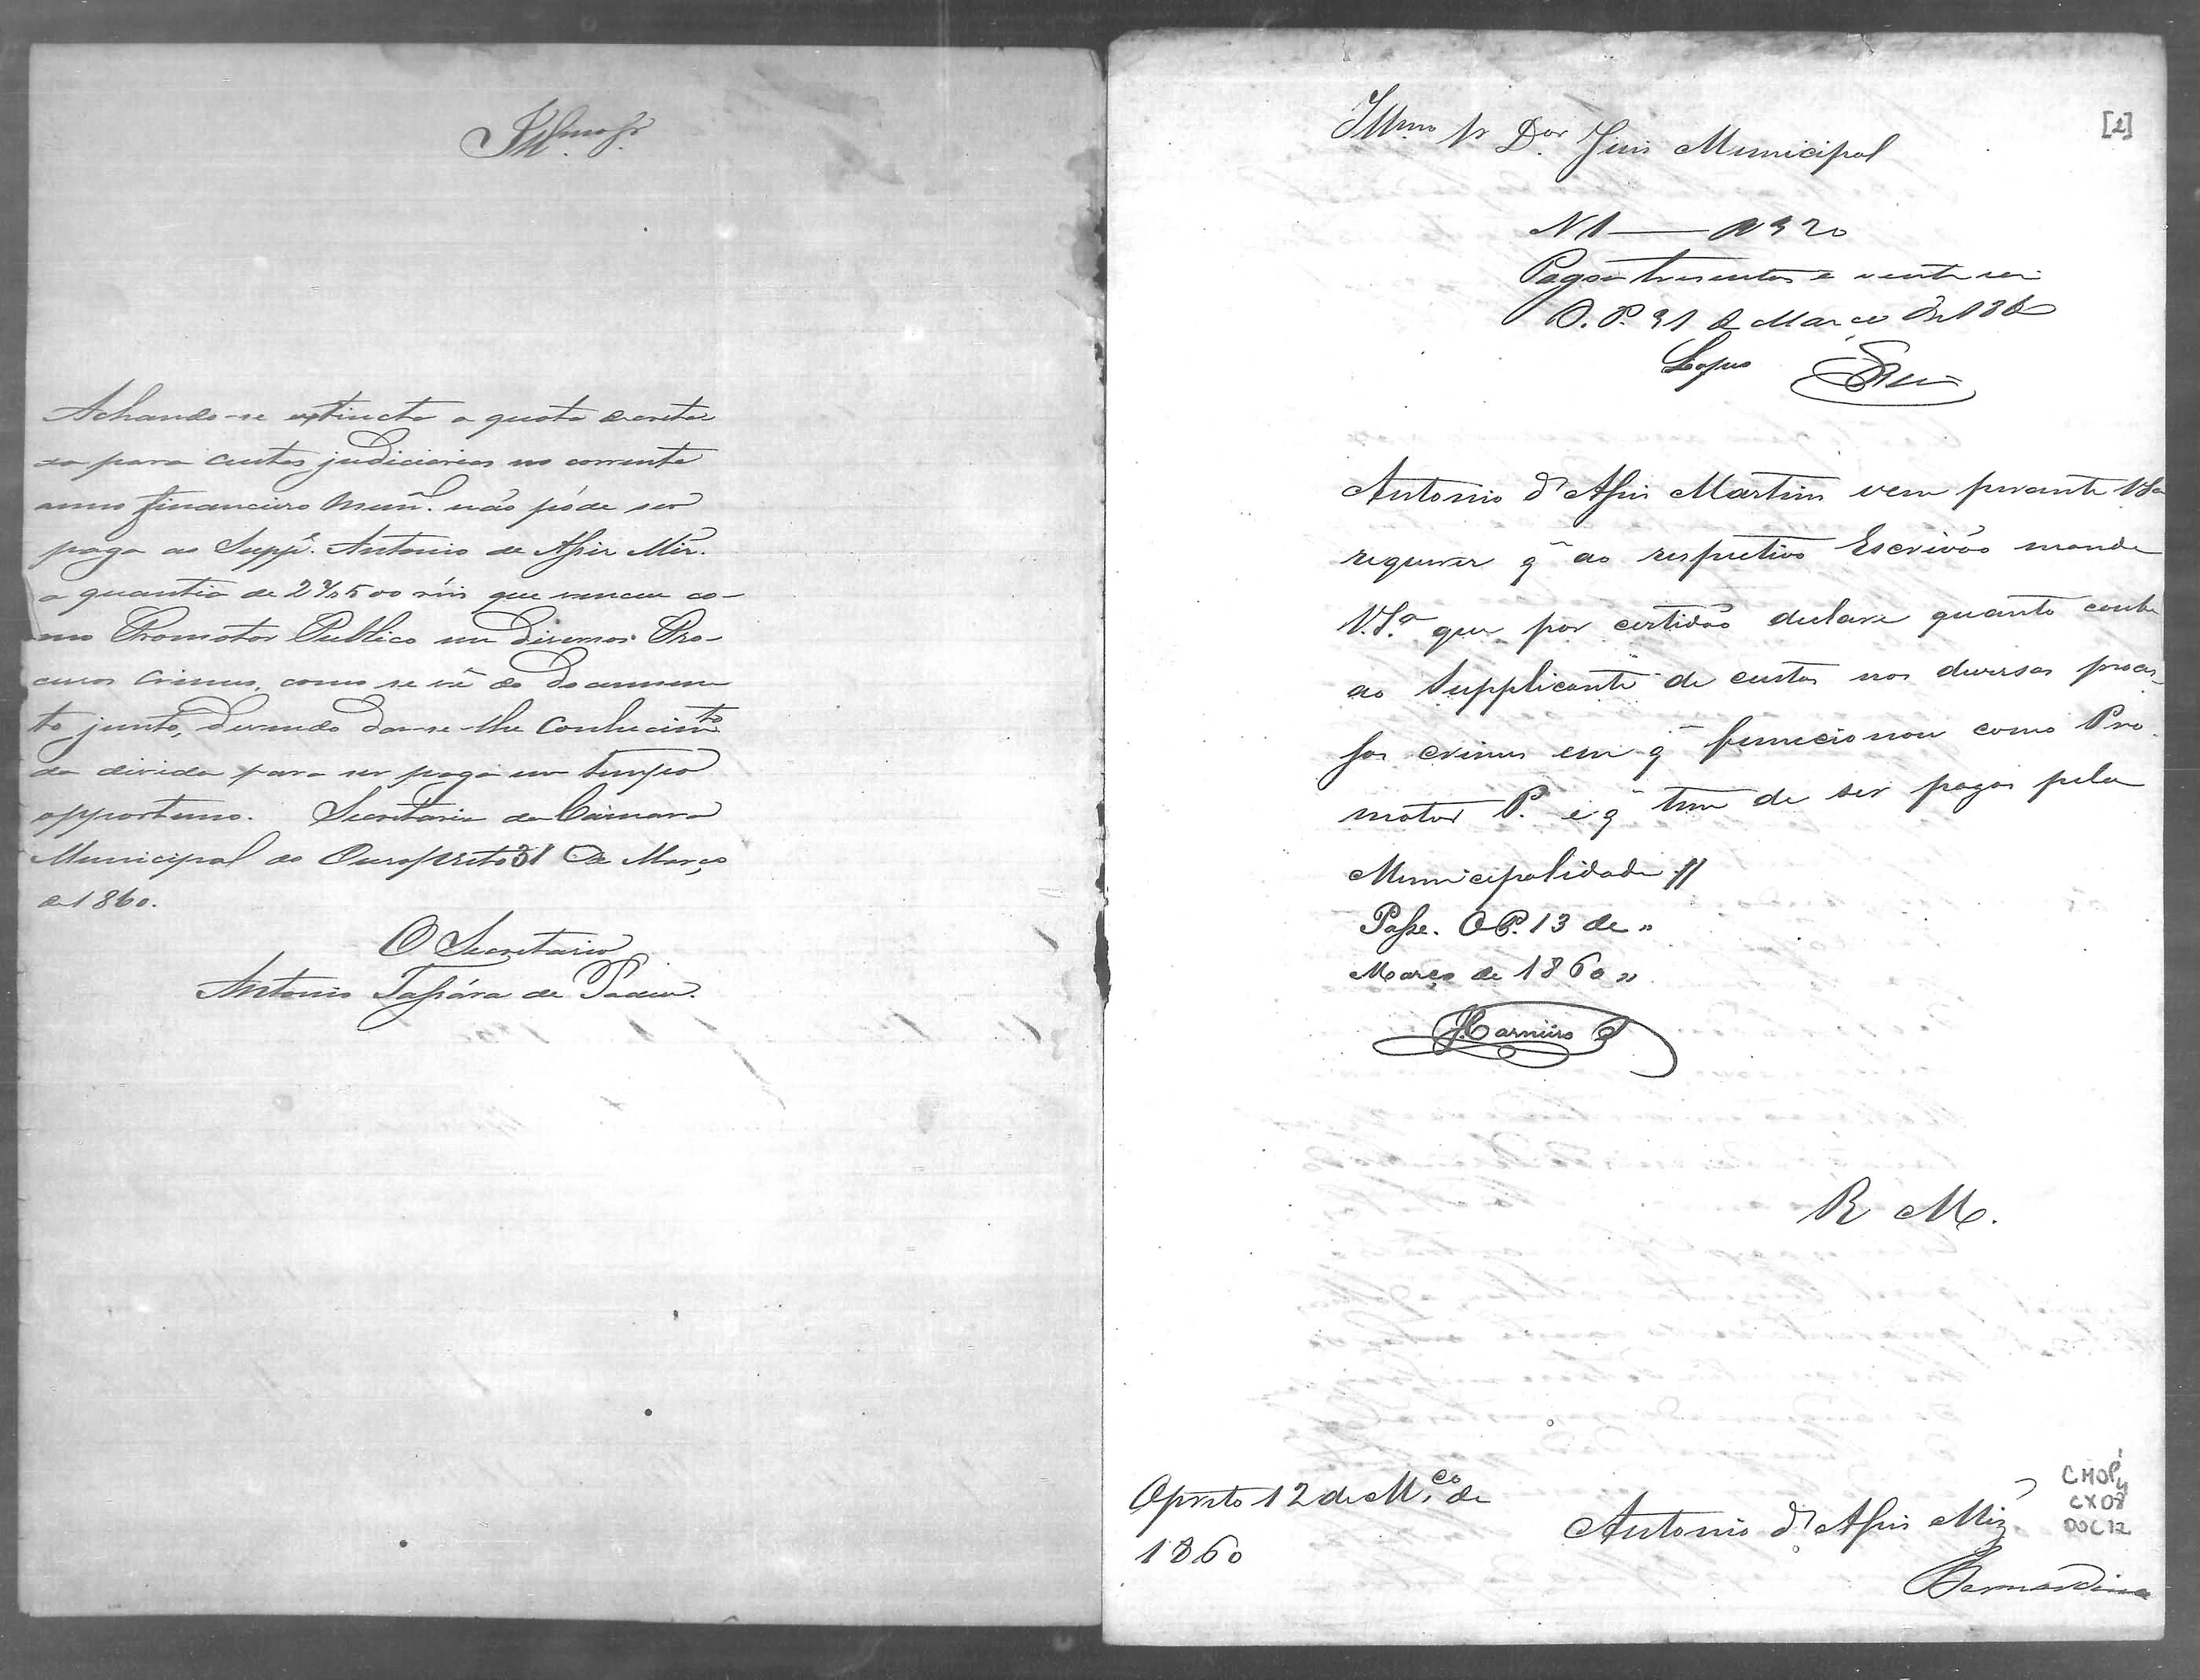 Illmo Sr.
Achando-se extincta a quota decreta
da para custas judiciarias no corrente
anno financeiro Mun. não póde ser
paga ao Supp.e Antonio de Assis Miz.
a quantia de 27$500 réis que venceu co-
mo Promotor Publico em diversos Pro-
cessos crimes, como se vê do documen
to junto, devendo dar-se-lhe conhecim.to
da divida para ser paga em tempo
opportuno. Secretaria da Camara
Municipal do Ouro preto 31 de Março
de 1860.
O Secretario
Antonio Tassára de Padua.
[1]
Illmo Sr Dor Juis Municipal
N 1 — 320
Pagou tresentos e vinte reis
O. P. 31 de Março de 1860
Lopes
Antonio d'Assis Martins vem perante VSa
requerer q ao respectivo Escrivão mande
V.S.a que por certidão declare quanto coube
ao Supplicante de custas nos diversos proces-
sos crimes em q funccionou como Pro
motor P. e q tem de ser pagas pela
Municipalidade //
Passe. O.P. 13 de "
Março de 1860 "
J Carneiro
R M.
Opreto 12 de M.ço de
1860
Antonio d'Assis Miz
Bernardino
CMOP
CX 08
DOC 12